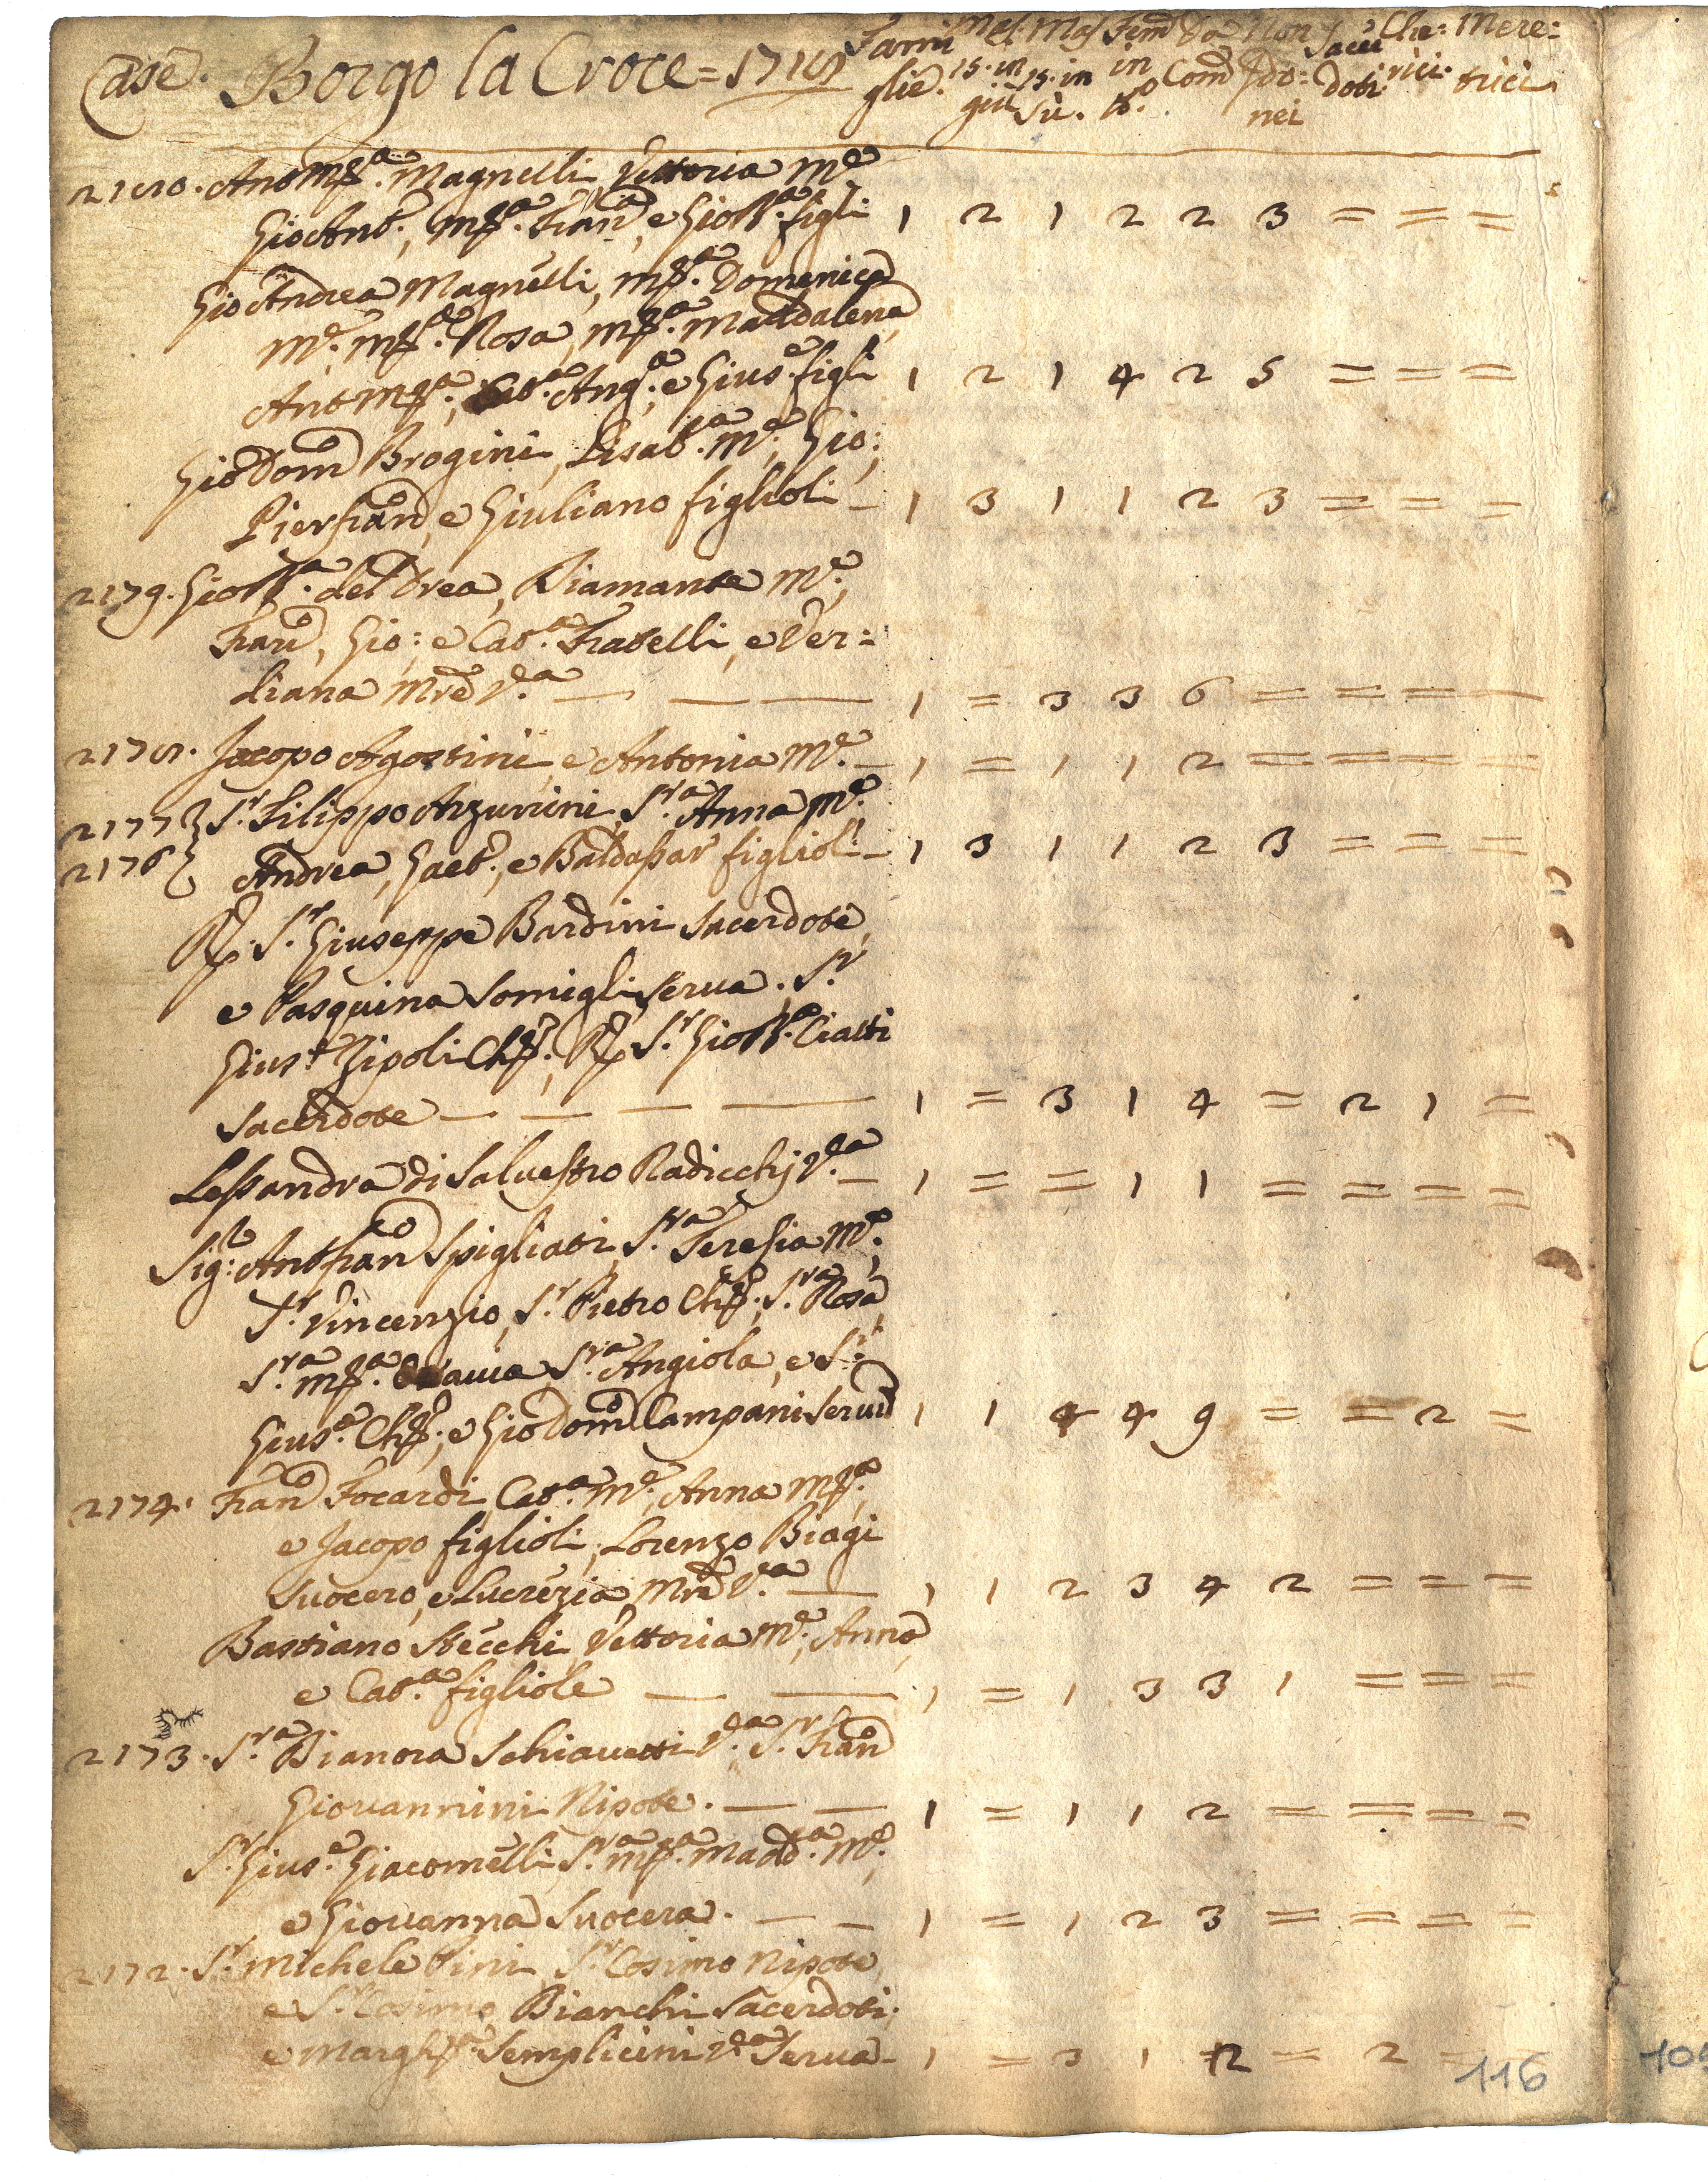 Case. Borgo la Croce = 1719 Fami Mas. Mas Fem Da Non Sacer Che: Mere=
glie. 15. in 15. in in Com Ido= doti rici. trici
giù sù. nei
2180. Ant Mª. Magnelli, Vettoria Mᵉ
Gio Antº., Mª. Franᵃ, e Gio Bª. figli 1 2 1 2 2 3 = = =
Gio Andrea Magnelli, Mª. Domenica
Mᵉ. Mª. Rosa, Mª. Maddalena,
Ant Mª., Catª. Angª., e Giusᵉ. figli 1 2 1 4 2 5 = = =
Gio Domº Brogini, Lisabª. Mᵉ., Gio:,
Pierfranº, e Giuliano figlioli - 1 3 1 1 2 3 = = =
2179. Gio Bª. del Drea, Diamante Mᵉ.,
Franº, Gio: e Catª. Fratelli, e Ver=
diana Mrẽ Vᵈᵃ. — — — 1 = 3 3 6 = = = =
2178. Jacopo Agostini, e Antonia Mᵉ. - 1 = 1 1 2 = = = =
2177} Sʳ. Filippo Arzunini, Sʳᵃ. Anna Mᵉ.
2176} Andrea, Gaetº., e Baldassarʳ figlioli - 1 3 1 1 2 3 = = =
R. Sʳ. Giuseppe Bardini Sacerdote,
e Pasquina Somigli serva. Sʳ.
Giusᵉ. Zipoli Ch., R. Sʳ. Gio Bª. Cialli
Sacerdote — — — — 1 = 3 1 4 = 2 1 =
Lessandra di Salvestro Radicchj Vᵈᵃ. - 1 = = 1 1 = = = =
Sig: Ant Franº Spigliati, Sʳᵃ. Teresia Mᵉ.,
Sʳ. Vincenzio, Sʳ. Pietro Ch., Sʳᵃ. Rosa,
Sʳᵃ. Mª. Sʳᵃ. Angiola, e Sʳ.
Giusᵉ. Ch., e Gio Domº Campani Servitº 1 1 4 4 9 = = 2 =
2174. Franº Focardi, Catª. Mᵉ., Anna Mª.,
e Jacopo figlioli, Lorenzo Biagi
Suocero, e Lucrezia Mrẽ Vᵈᵃ. — 1 1 2 3 4 2 = = =
Bastiano Stecchi, Vettoria Mᵉ., Anna,
e Catª. figliole — — 1 = 1 3 3 1 = = =
2173. Sʳᵃ. Bianora Schiavetti Vᵈᵃ. Sʳ. Franº
Giovannini Nipote. — — 1 = 1 1 2 = = = =
Sʳ. Giusᵉ. Giacomelli, Sʳᵃ. Mª. Maddª. Mᵉ.,
e Giovanna Suocera. — - 1 = 1 2 3 = = = =
2172. Sʳ. Michele Pini, Sʳ. Cosimo Nipote,
e Sʳ. Cosimo Bianchi Sacerdoti,
e Margª. Semplicini Vᵈᵃ Serva - 1 = 3 1 2 = 2 =
116